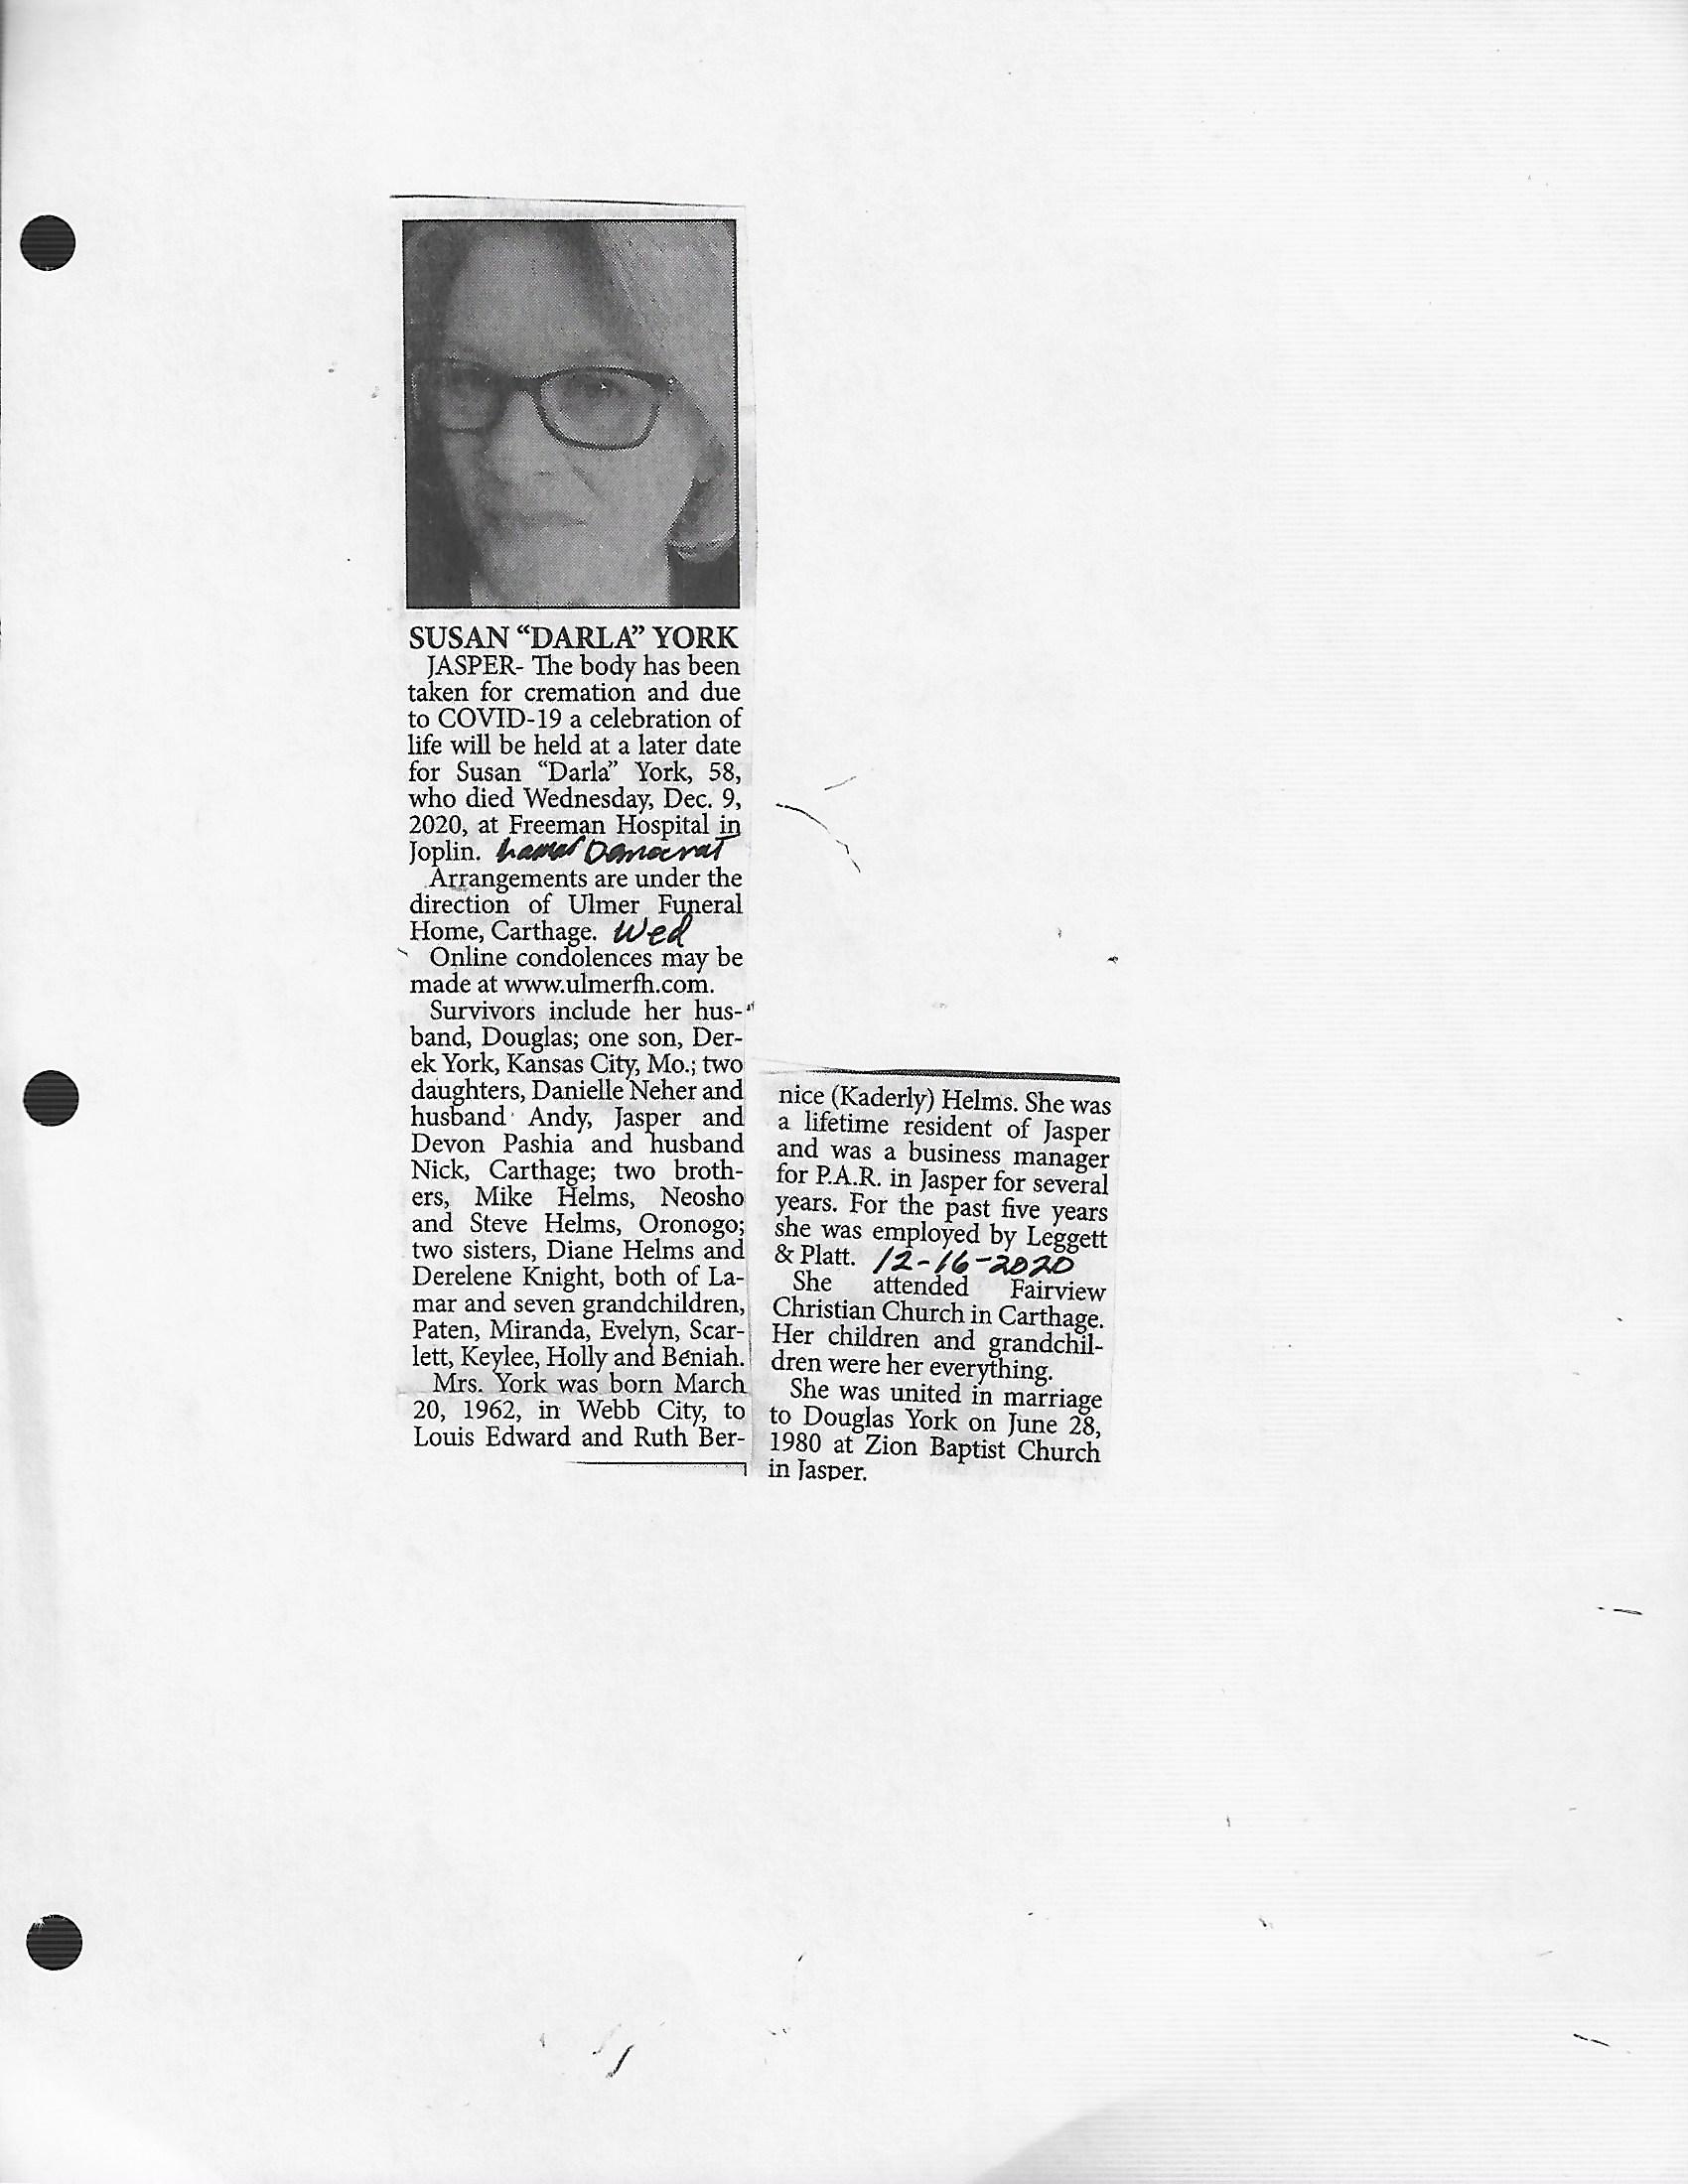 SUSAN “DARLA” YORK
JASPER- The body has been
taken for cremation and due
to COVID-19 a celebration of
life will be held at a later date
for Susan “Darla” York, 58,
who died Wednesday, Dec. 9,
2020, at Freeman Hospital in
Joplin. Lamar Democrat
Arrangements are under the
direction of Ulmer Funeral
Home, Carthage. Wed
Online condolences may be
made at www.ulmerfh.com.
Survivors include her hus-
band, Douglas; one son, Der-
ek York, Kansas City, Mo.; two
daughters, Danielle Neher and
husband Andy, Jasper and
Devon Pashia and husband
Nick, Carthage; two broth-
ers, Mike Helms, Neosho
and Steve Helms, Oronogo;
two sisters, Diane Helms and
Derelene Knight, both of La-
mar and seven grandchildren,
Paten, Miranda, Evelyn, Scar-
lett, Keylee, Holly and Beniah.
Mrs. York was born March
20, 1962, in Webb City, to
Louis Edward and Ruth Ber-
nice (Kaderly) Helms. She was
a lifetime resident of Jasper
and was a business manager
for P.A.R. in Jasper for several
years. For the past five years
she was employed by Leggett
& Platt. 12-16-2020
She attended Fairview
Christian Church in Carthage.
Her children and grandchil-
dren were her everything.
She was united in marriage
to Douglas York on June 28,
1980 at Zion Baptist Church
in Jasper.